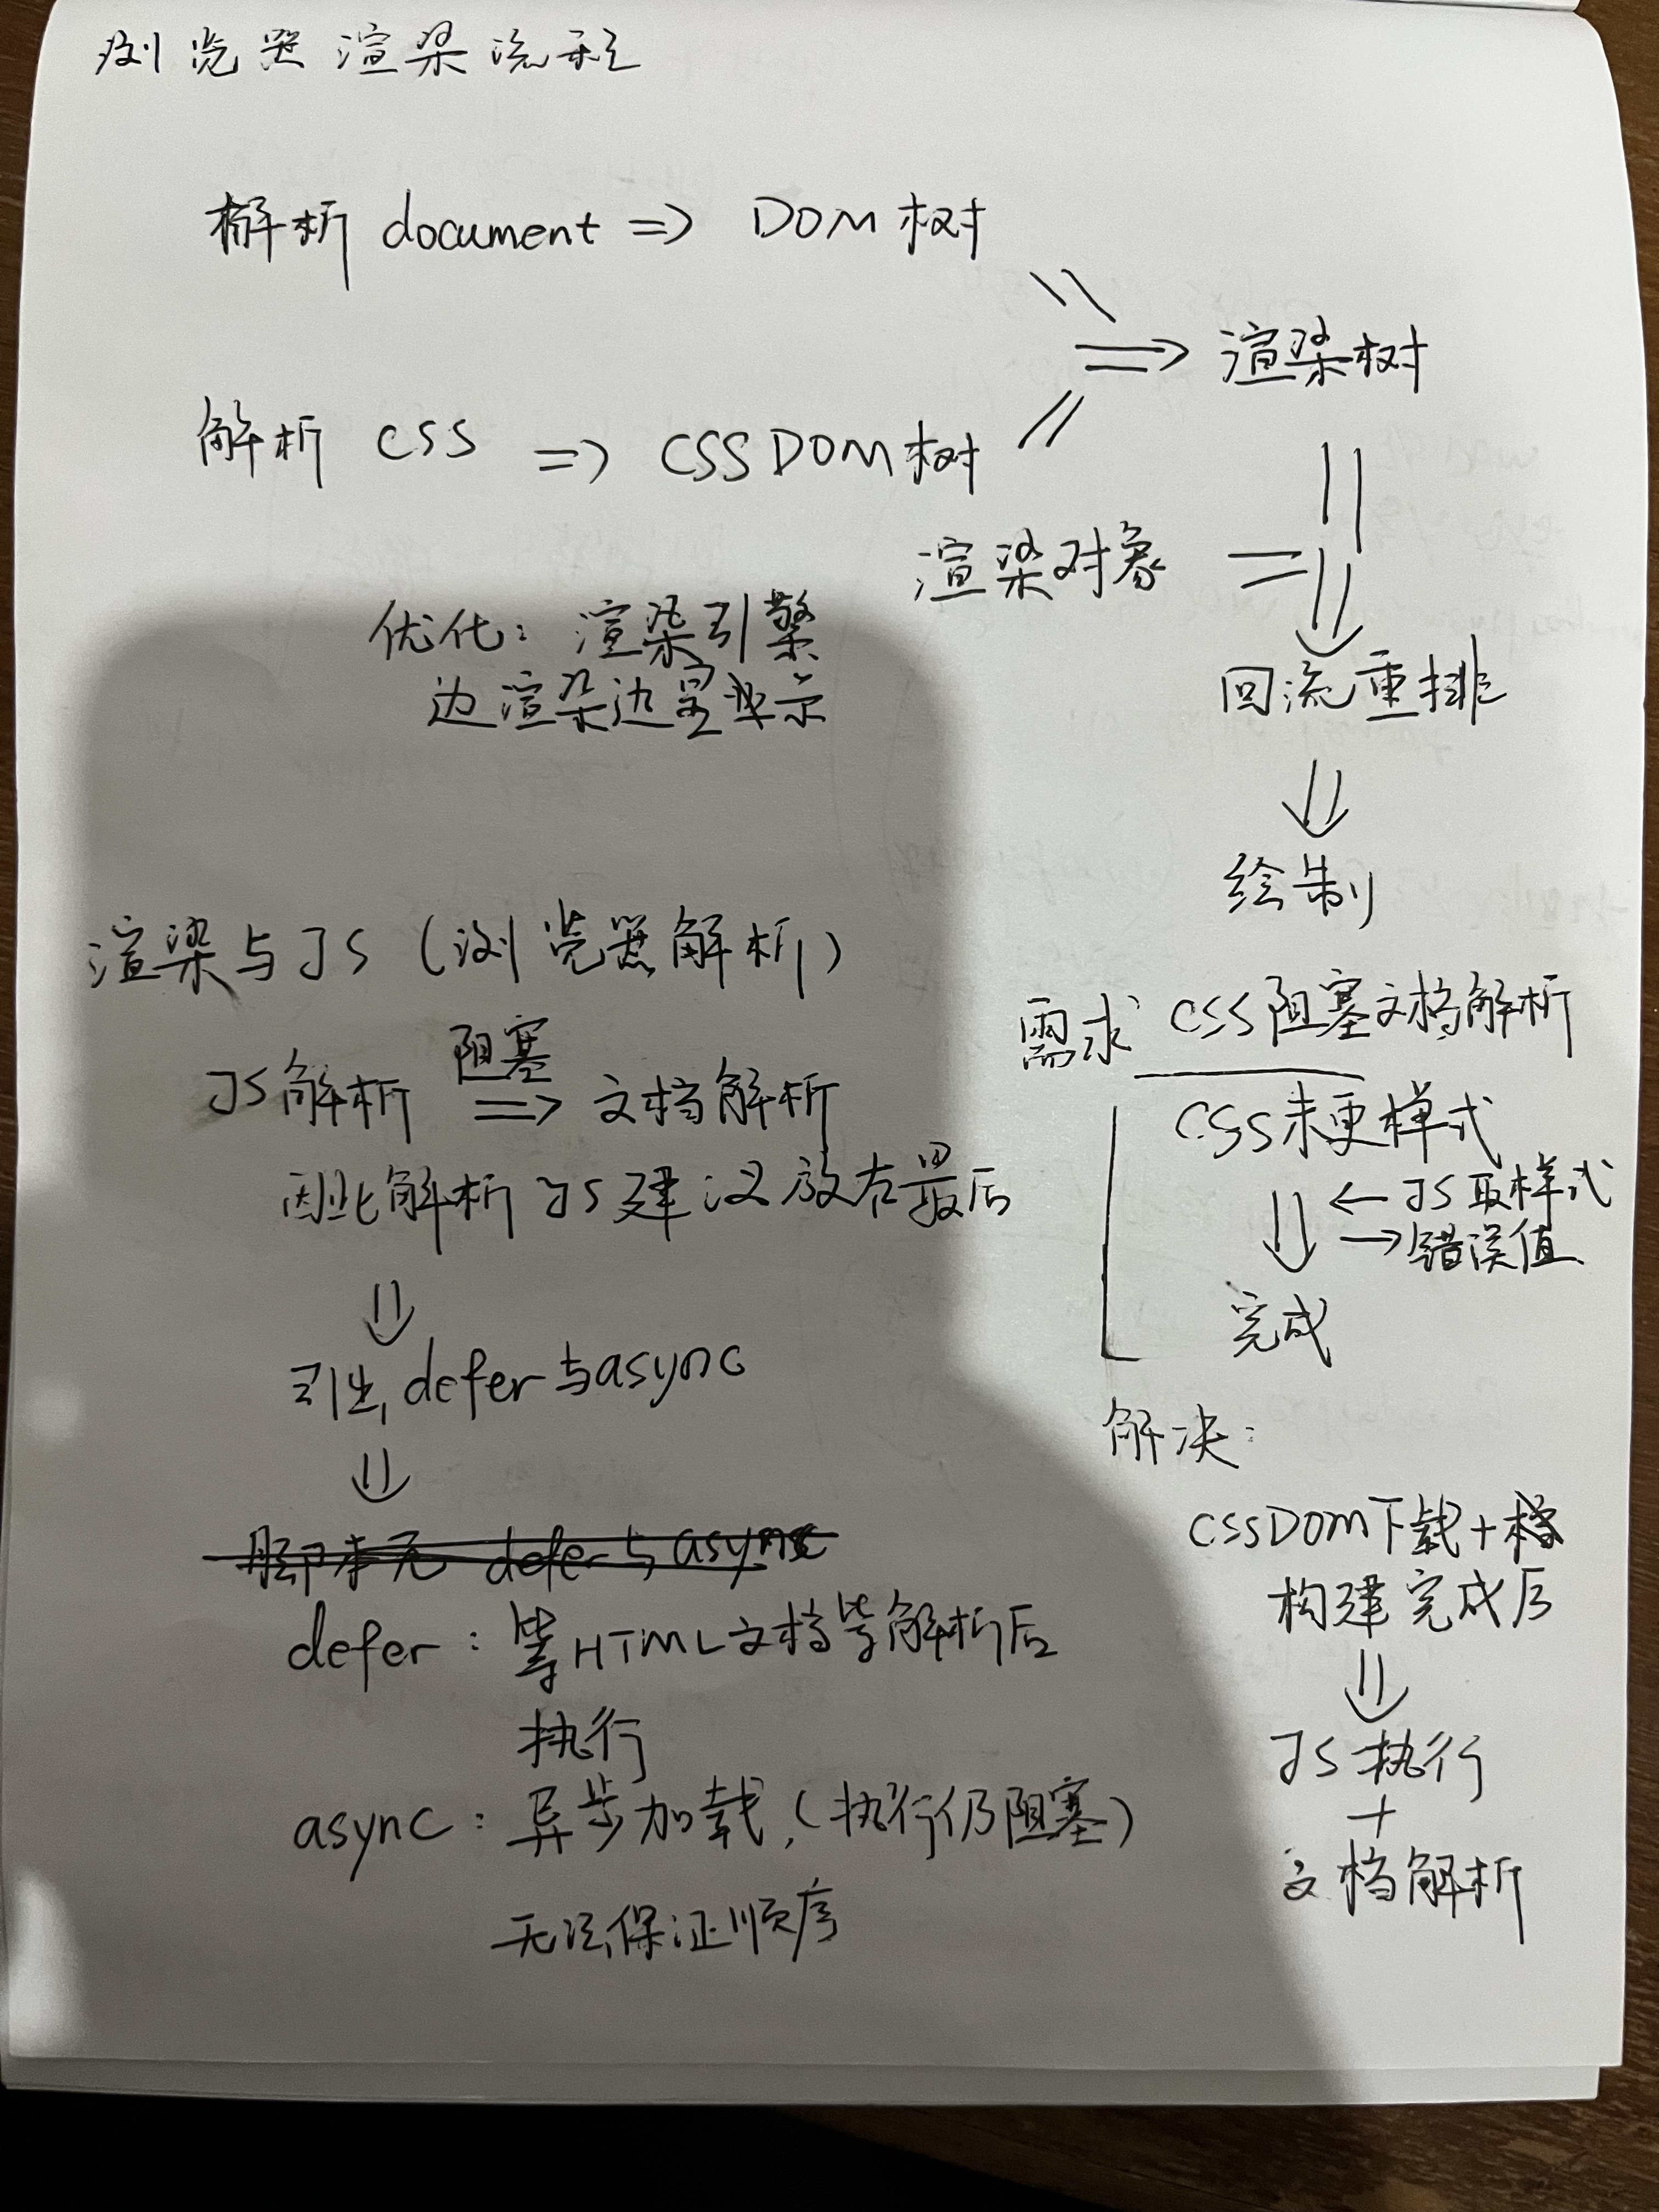 浏览器渲染流程
解析 document => DOM树
=> 渲染树
解析 CSS => CSSDOM树
渲染对象 =
优化: 渲染引擎
边渲染边显示
回流重排
绘制
渲染与JS (浏览器解析)
JS解析 阻塞 => 文档解析
因此解析JS建议放在最后
引出 defer与async
脚本无 defer与async
defer: 等HTML文档皆解析后
执行
async: 异步加载, (执行仍阻塞)
无法保证顺序
需求 CSS阻塞文档解析
CSS未更样式
← JS取样式
→ 错误值
完成
解决:
CSSDOM下载+
构建完成后
JS执行
+
文档解析